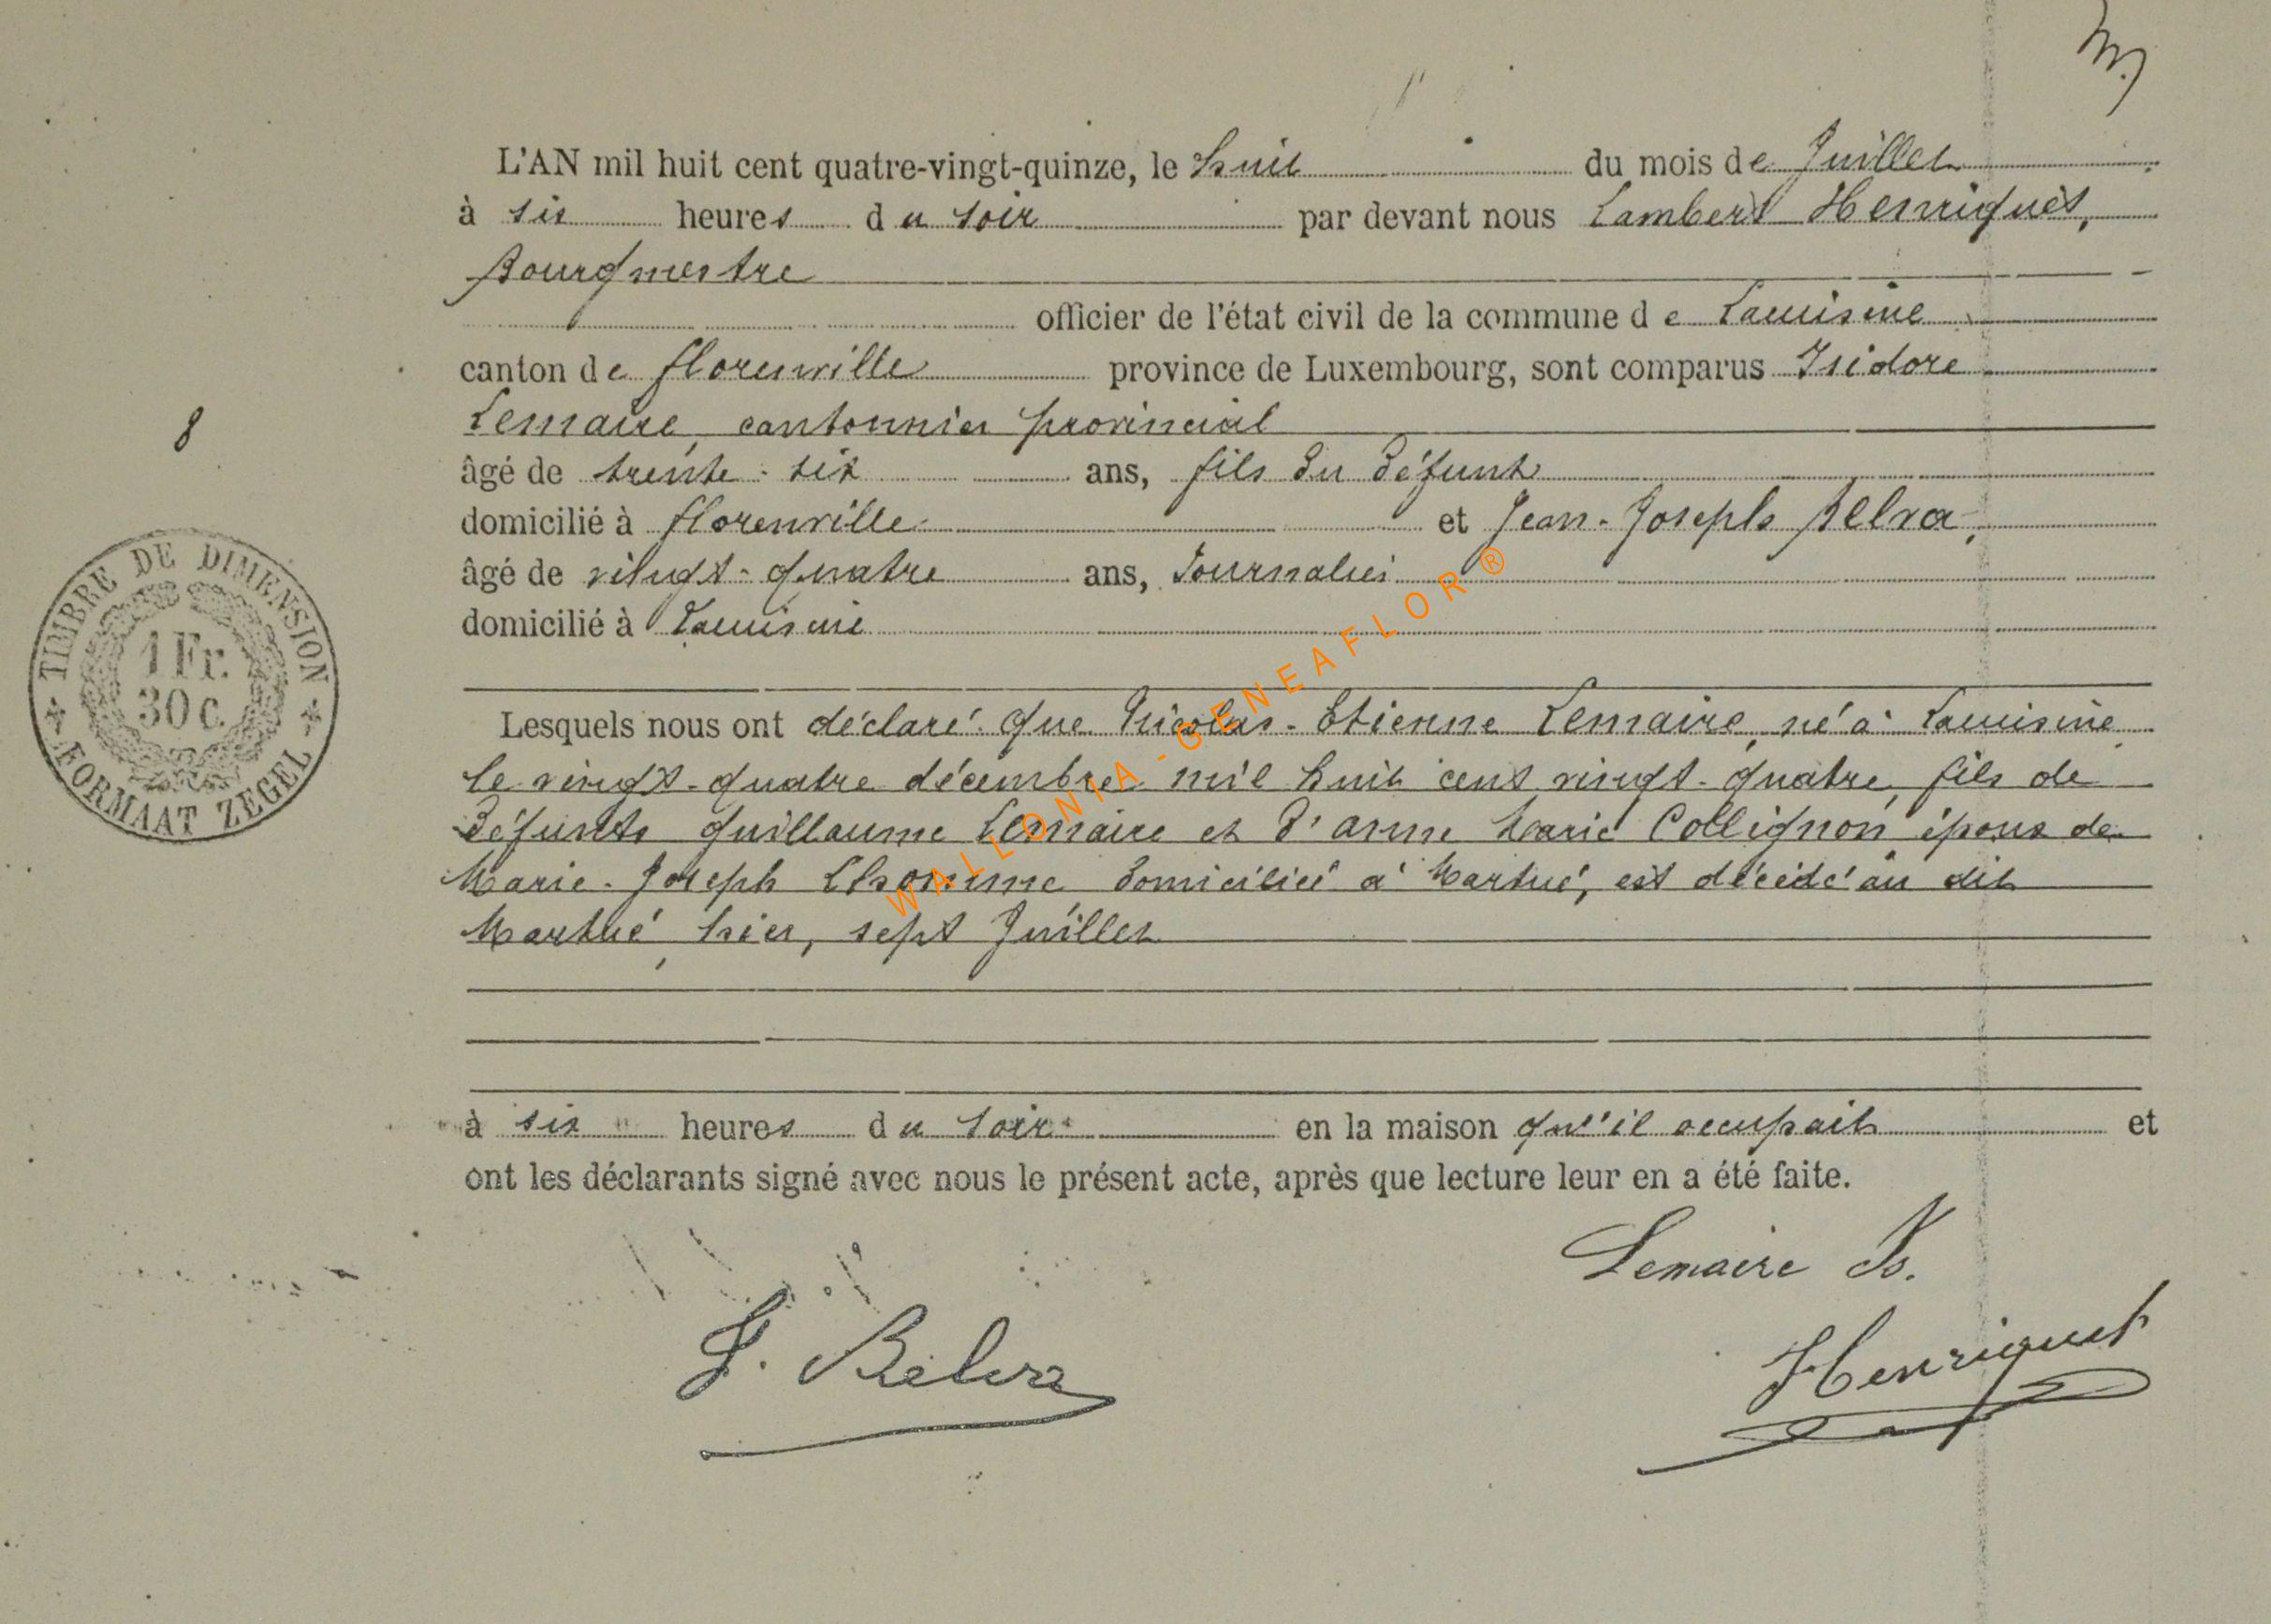 L'AN mil huit cent quatre-vingt-quinze, le huit du mois de Juillet
à six heures du soir par devant nous Lambert Henriquet,
Bourgmestre
officier de l'état civil de la commune de Lacuisine
canton de Florenville province de Luxembourg, sont comparus Isidore
Lemaire, cantonnier provincial
8
âgé de trente-six ans, fils du défunt
domicilié à Florenville et Jean-Joseph Belva,
âgé de vingt-quatre ans, Journalier
domicilié à Lacuisine
TIMBRE DE DIMENSION
1 Fr.
30 c.
FORMAAT ZEGEL
Lesquels nous ont déclaré que Nicolas-Etienne Lemaire, né à Lacuisine
le vingt-quatre décembre mil huit cent vingt-quatre, fils de
défunts Guillaume Lemaire et d'Anne Marie Collignon, époux de
Marie-Joseph domicilié à Martué, est décédé au dit
Martué, hier, sept Juillet
à six heures du soir en la maison qu'il occupait et
ont les déclarants signé avec nous le présent acte, après que lecture leur en a été faite.
Lemaire Is.
J. Belva
Henriquet
WALLONIA-GENEAFLOR®